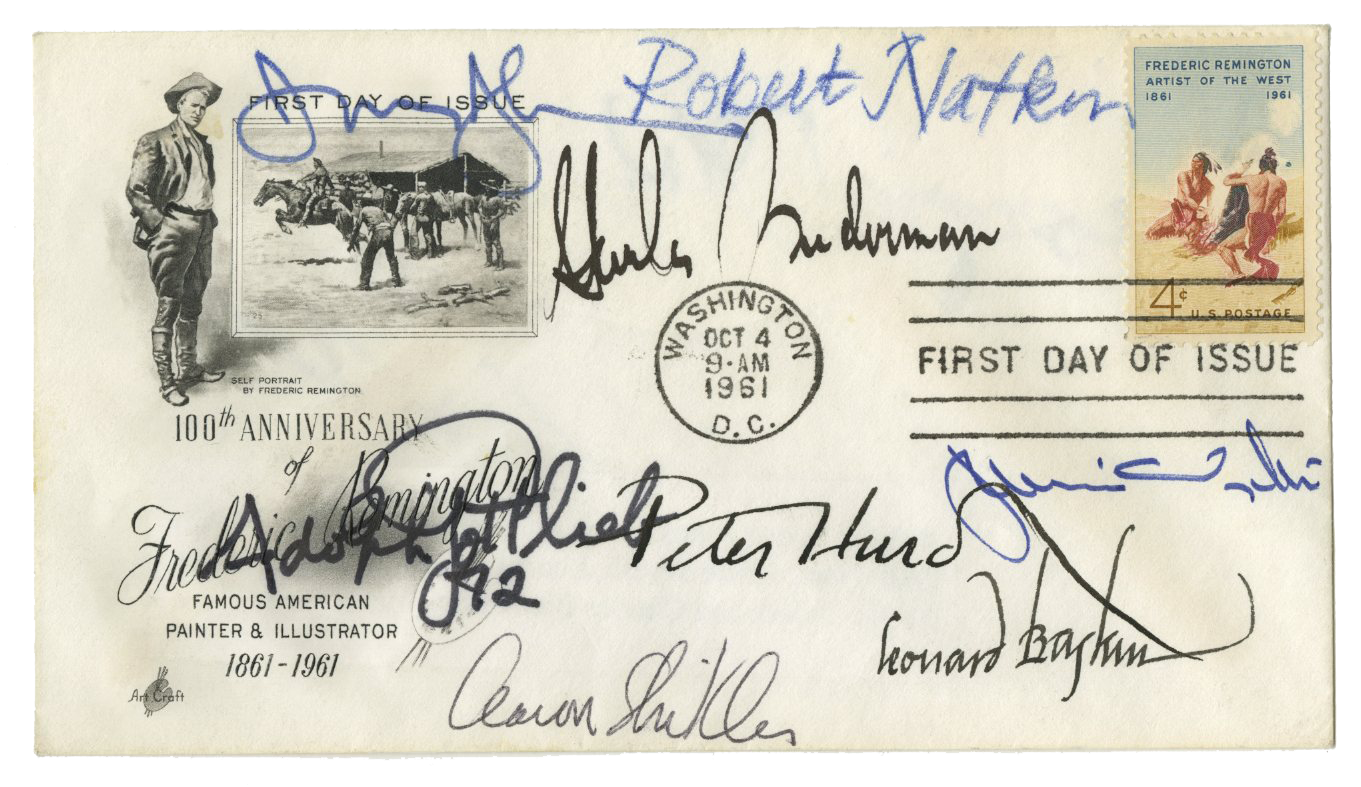 FIRST DAY OF ISSUE
Robert Natkin
FREDERIC REMINGTON
ARTIST OF THE WEST
1861 1961
4¢
U.S. POSTAGE
WASHINGTON
OCT 4
9-AM
1961
D.C.
FIRST DAY OF ISSUE
SELF PORTRAIT
BY FREDERIC REMINGTON
100th ANNIVERSARY
of
Frederic Remington
FAMOUS AMERICAN
PAINTER & ILLUSTRATOR
1861-1961
Art Craft
Adolph Gottlieb
Peter Hurd
Leonard Baskin
Aaron Shikler